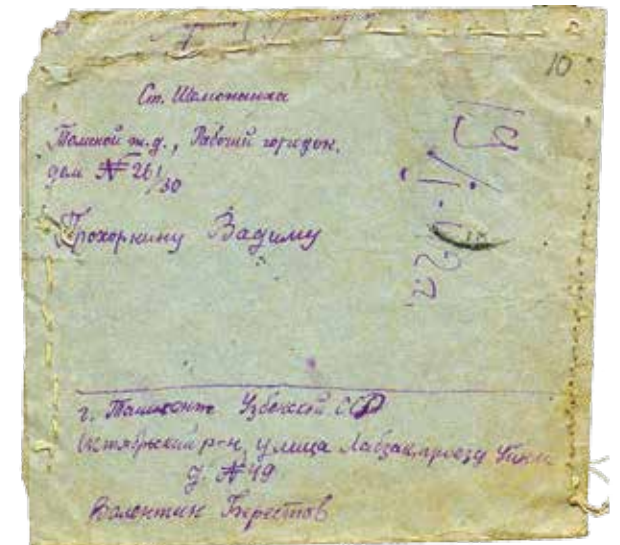 10
Ст. Шемонаиха
Томской ж.д., Рабочий городок,
дом № 26/30
Прохоркину Вадиму
г. Ташкент Узбекской ССР
Октябрьский р-н, улица Лабзак, проезд
д. № 49
Валентин Берестов